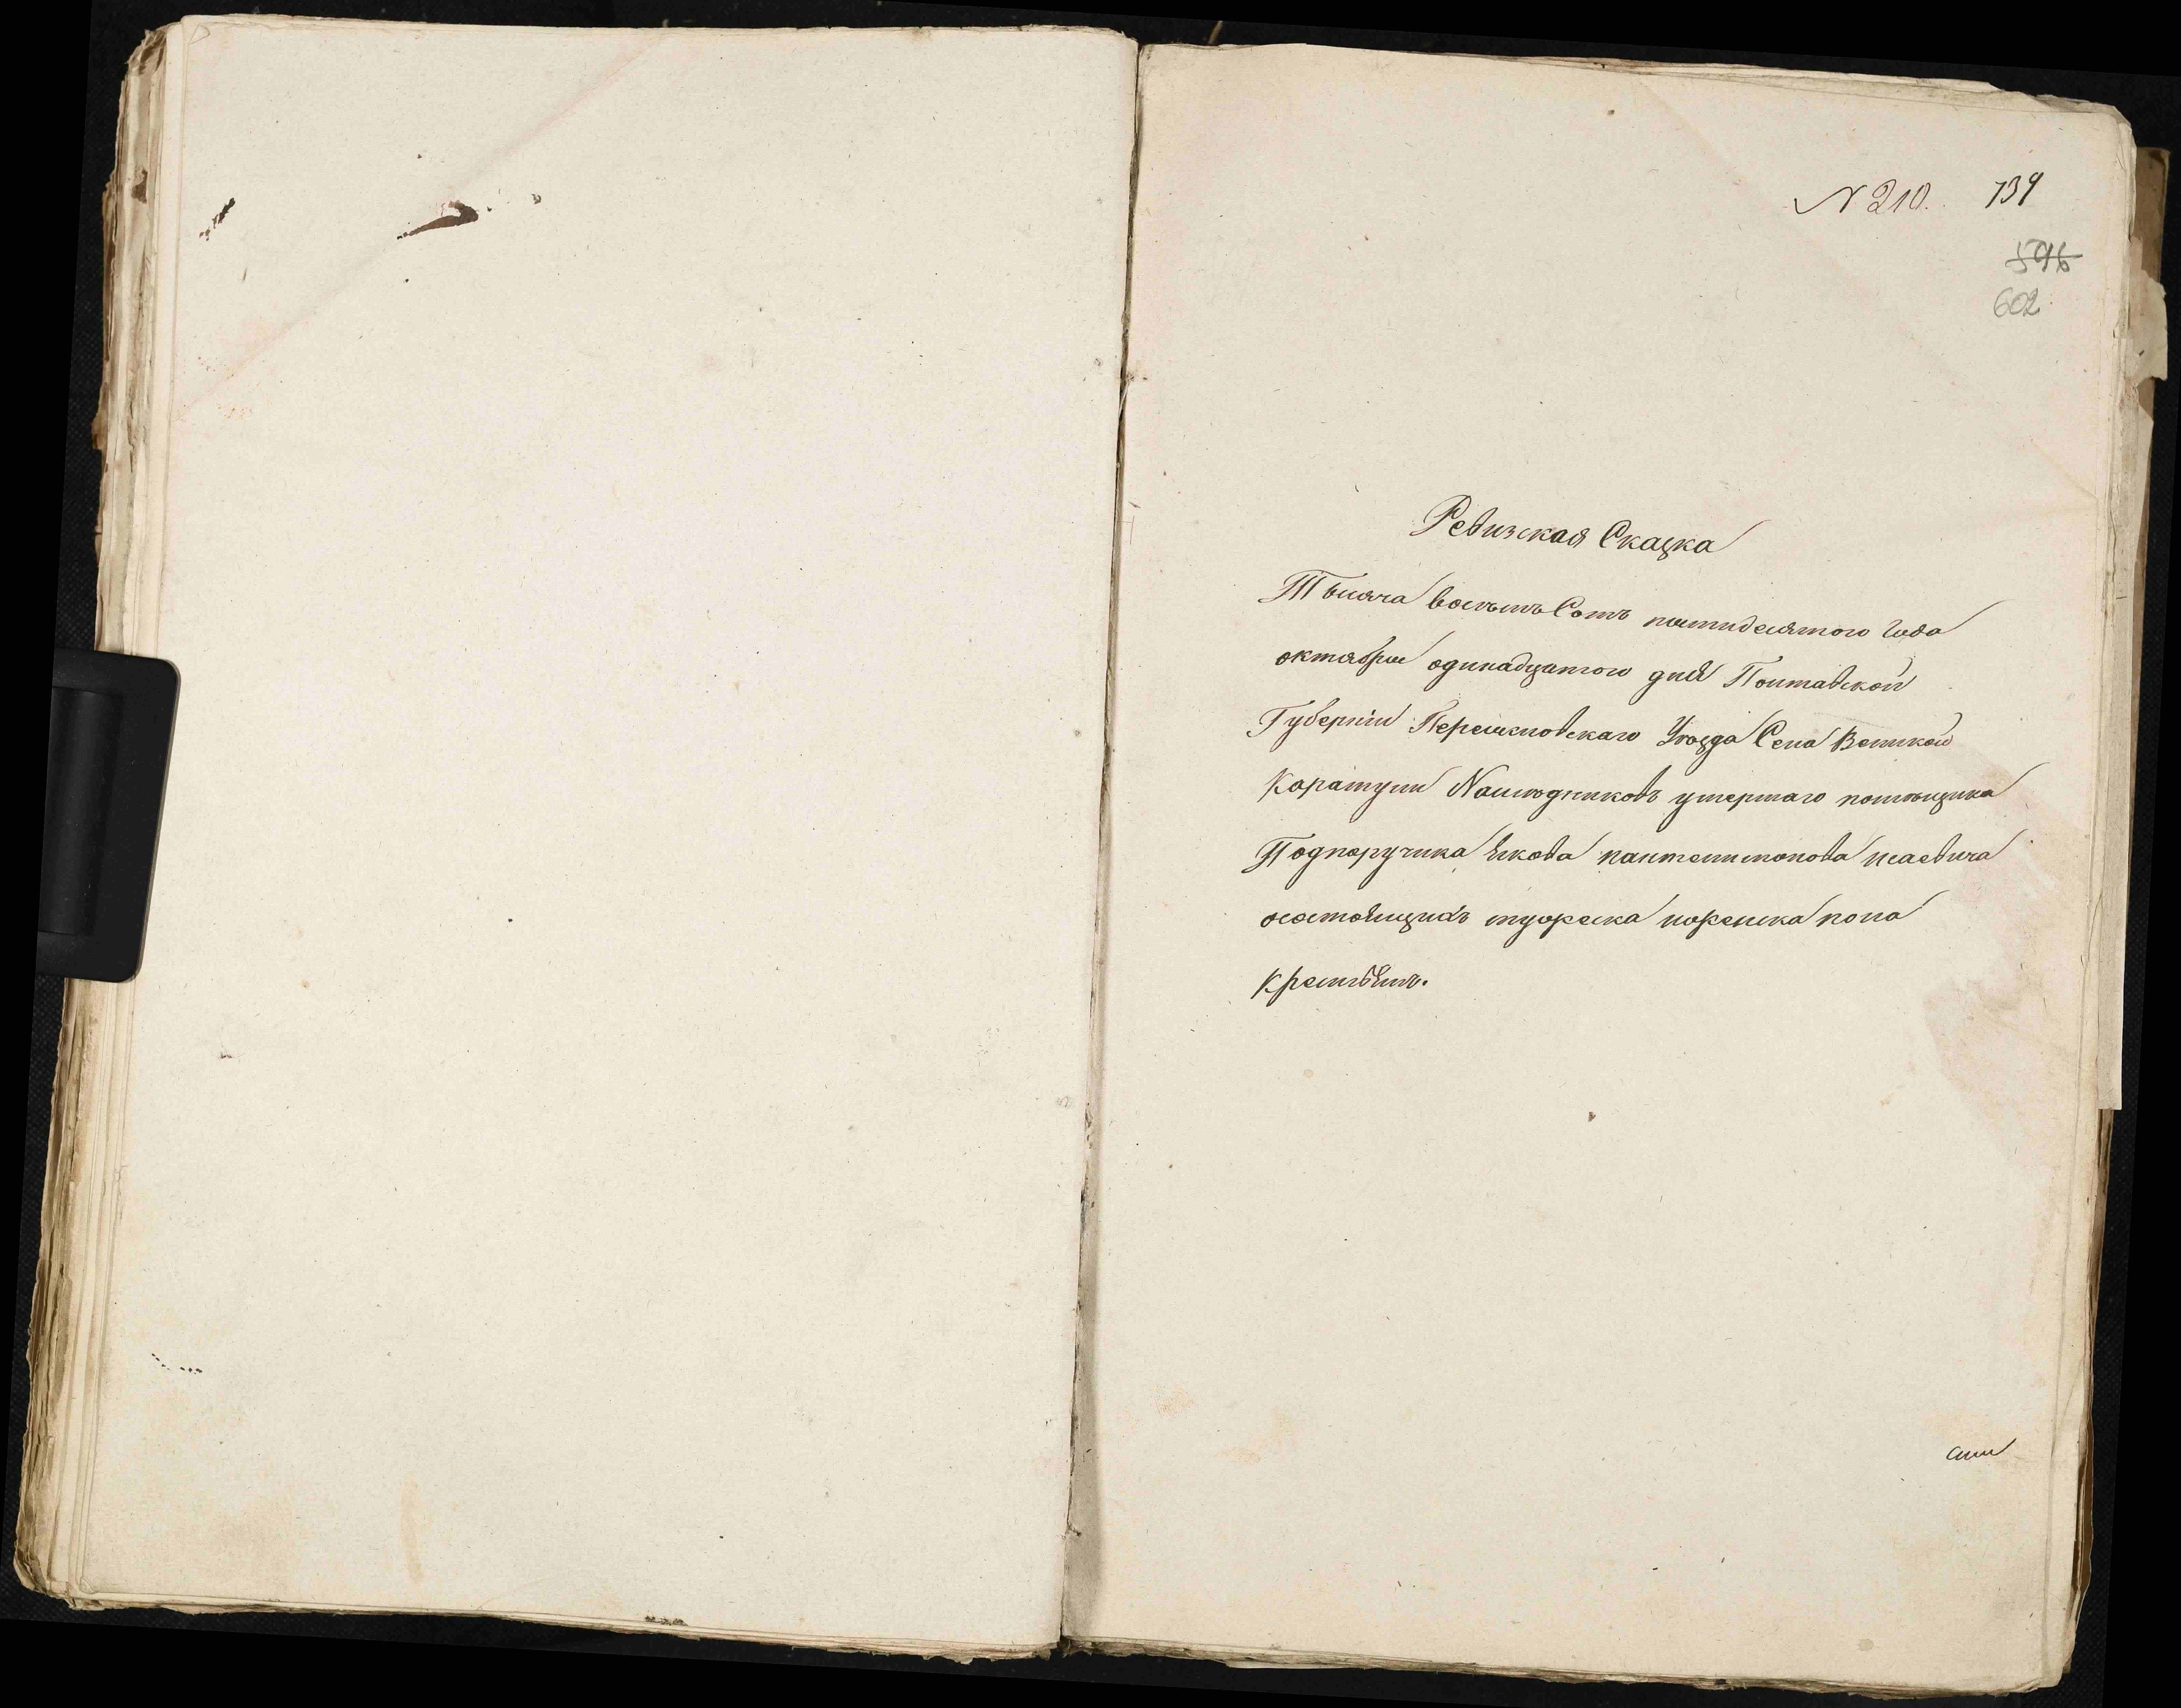 N 210. 739
596
602
Ревизская Сказка
Тысяча восемь Сотъ пятидесятого года
октября одинадцатого дня Полтавской
Губерніи Переяславскаго Уѣзда Села Великой
Каратули Наслѣдниковъ умершаго помѣщика
Подпоручика Якова пантелимонова исаевича
осостоящихъ мужеска иженска пола
крестьянъ.